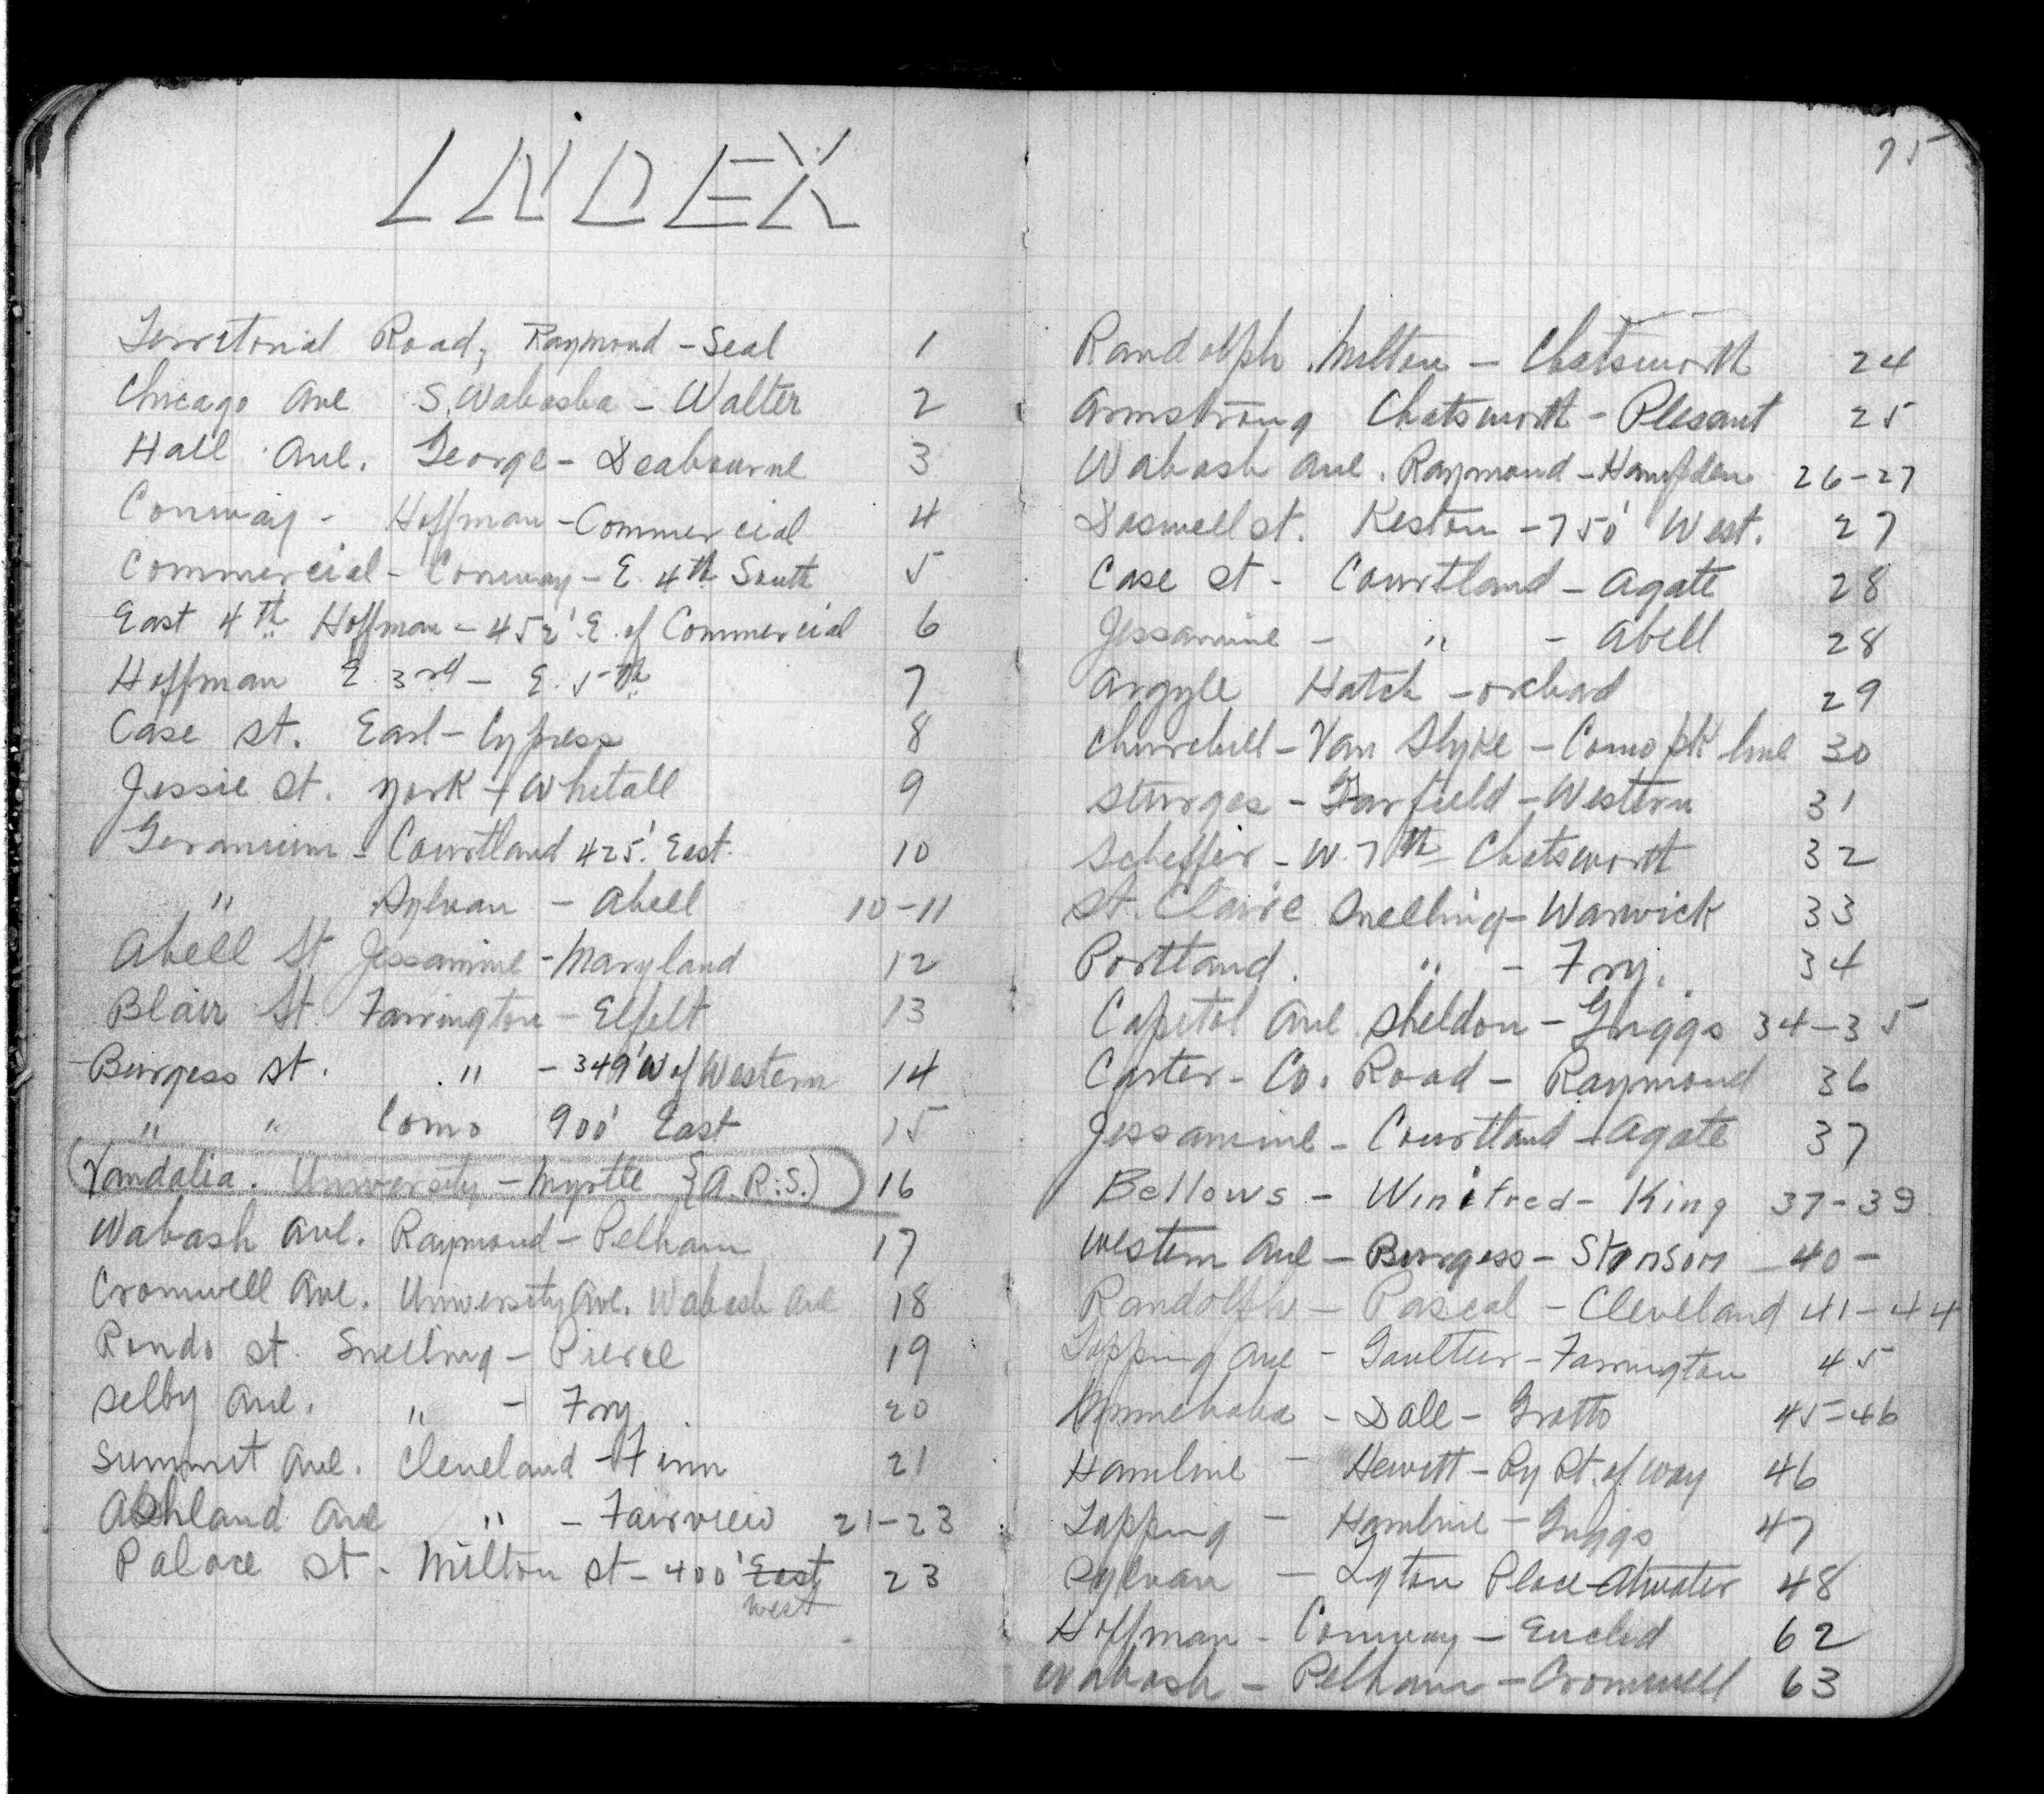 INDEX
Territorial Road, Raymond - Seal 1
Chicago Ave S. Wabasha - Walter 2
Hall Ave. George - Deabourne 3
Conway - Hoffman - Commercial 4
Commercial - Conway - E. 4th South 5
East 4th Hoffman - 452' E. of Commercial 6
Hoffman E. 3rd - E. 5th 7
Case St. Earl - Cypress 8
Jessie St. York - Whitall 9
Geranium - Courtland 425' East. 10
" Sylvan - Abell 10-11
Abell St Jessamine - Maryland 12
Blair St. Farrington - Elfelt 13
Burgess St. " - 349' W of Western 14
" " Como 900' East 15
Vandalia. University - Myrtle {A.R.S.) 16
Wabash Ave. Raymond - Pelham 17
Cromwell Ave. University Ave. Wabash Ave 18
Rondo St. Snelling - Pierce 19
Selby Ave. " - Fry 20
Summit Ave. Cleveland - Finn 21
Ashland Ave " - Fairview 21-23
Palace St - Milton St - 400' East 23
West
75
Randolph Milton - Chatsworth 24
Armstrong Chatsworth - Plesant 25
Wabash Ave. Raymond - Hampden 26-27
Doswell St. Keston - 750' West. 27
Case St - Courtland - Agate 28
Jessamine - " - Abell 28
Argyle Hatch - Orchad 29
Churchill - Van Slyke - Como Pk line 30
Sturges - Garfield - Western 31
Scheffer - W. 7th Chatsworth 32
St. Claire Snelling - Warwick 33
Portland. " - Fry. 34
Capitol Ave Sheldon - Griggs 34-35
Carter - Co. Road - Raymond 36
Jessamine - Courtland - Agate 37
Bellows - Winifred - King 37-39
Western Ave - Burgess - Stinson - 40 -
Randolph - Pascal - Cleveland 41-44
Topping Ave - Gaultier - Farrington 45
Minnehaha - Dale - Grotto 45-46
Hamline - Hewitt - Ry Rt. of Way 46
Topping - Hamline - Griggs 47
Sylvan - Lyton Place - Atwater 48
Hoffman - Conway - Euclid 62
Wabash - Pelham - Cromwell 63